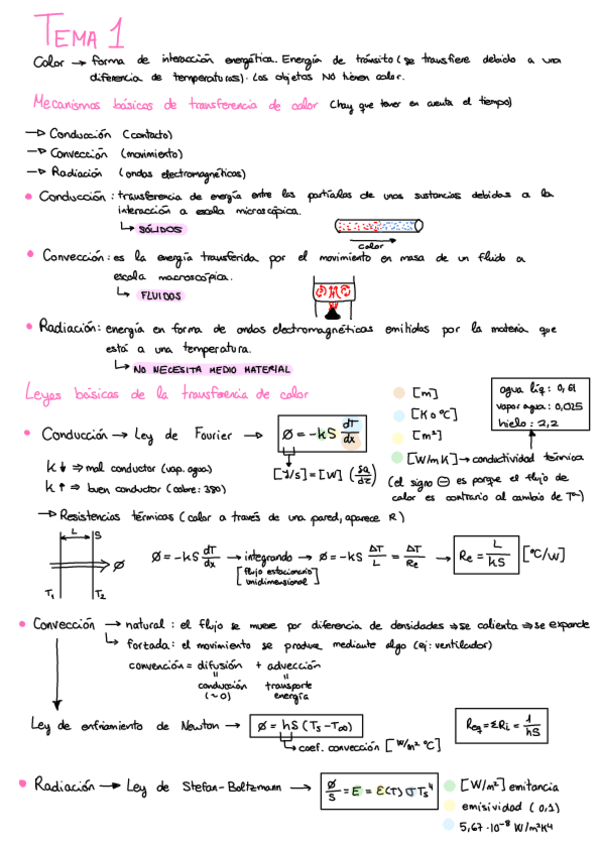 TEMA 1
Calor → forma de interacción energética. Energía de tránsito (se transfiere debido a una
diferencia de temperaturas). Los objetos NO tienen calor.
Mecanismos básicos de transferencia de calor (hay que tener en cuenta el tiempo)
→ Conducción (contacto)
→ Convección (movimiento)
→ Radiación (ondas electromagnéticas)
• Conducción: transferencia de energía entre las partículas de unas sustancias debidas a la
interacción a escala microscópica.
↳ SÓLIDOS
calor
• Convección: es la energía transferida por el movimiento en masa de un fluido a
escala macroscópica.
↳ FLUIDOS
• Radiación: energía en forma de ondas electromagnéticas emitidas por la materia que
está a una temperatura.
↳ NO NECESITA MEDIO MATERIAL
Leyes básicas de la transferencia de calor
[m]
[K o ºC]
[m²]
[W/mK] → conductividad térmica
agua líq: 0,61
vapor agua: 0,025
hielo: 2,2
(el signo ⊖ es porque el flujo de
calor es contrario al cambio de Tª)
• Conducción → Ley de Fourier → Ø = -kS dT/dx
[J/s] = [W]
k ↓ ⇒ mal conductor (vap. agua)
k ↑ ⇒ buen conductor (cobre: 380)
→ Resistencias térmicas (calor a través de una pared, aparece R)
L S
Ø
T₁ T₂
Ø = -kS dT/dx → integrando → Ø = -kS ΔT/L = ΔT/Re → Re = L/kS [ºC/W]
[flujo estacionario
unidimensional]
• Convección → natural: el flujo se mueve por diferencia de densidades ⇒ se calienta ⇒ se expande
↳ forzada: el movimiento se produce mediante algo (ej: ventilador)
convención = difusión + advección
conducción transporte
(~0) energía
Ley de enfriamiento de Newton → Ø = hS (Ts - T∞)
↳ coef. convección [W/m² ºC]
Req = ΣRi = 1/hS
• Radiación → Ley de Stefan-Boltzmann → Ø/S = E = ε(T) σ Ts⁴
[W/m²] emitancia
emisividad (0,1)
5,67·10⁻⁸ W/m²K⁴